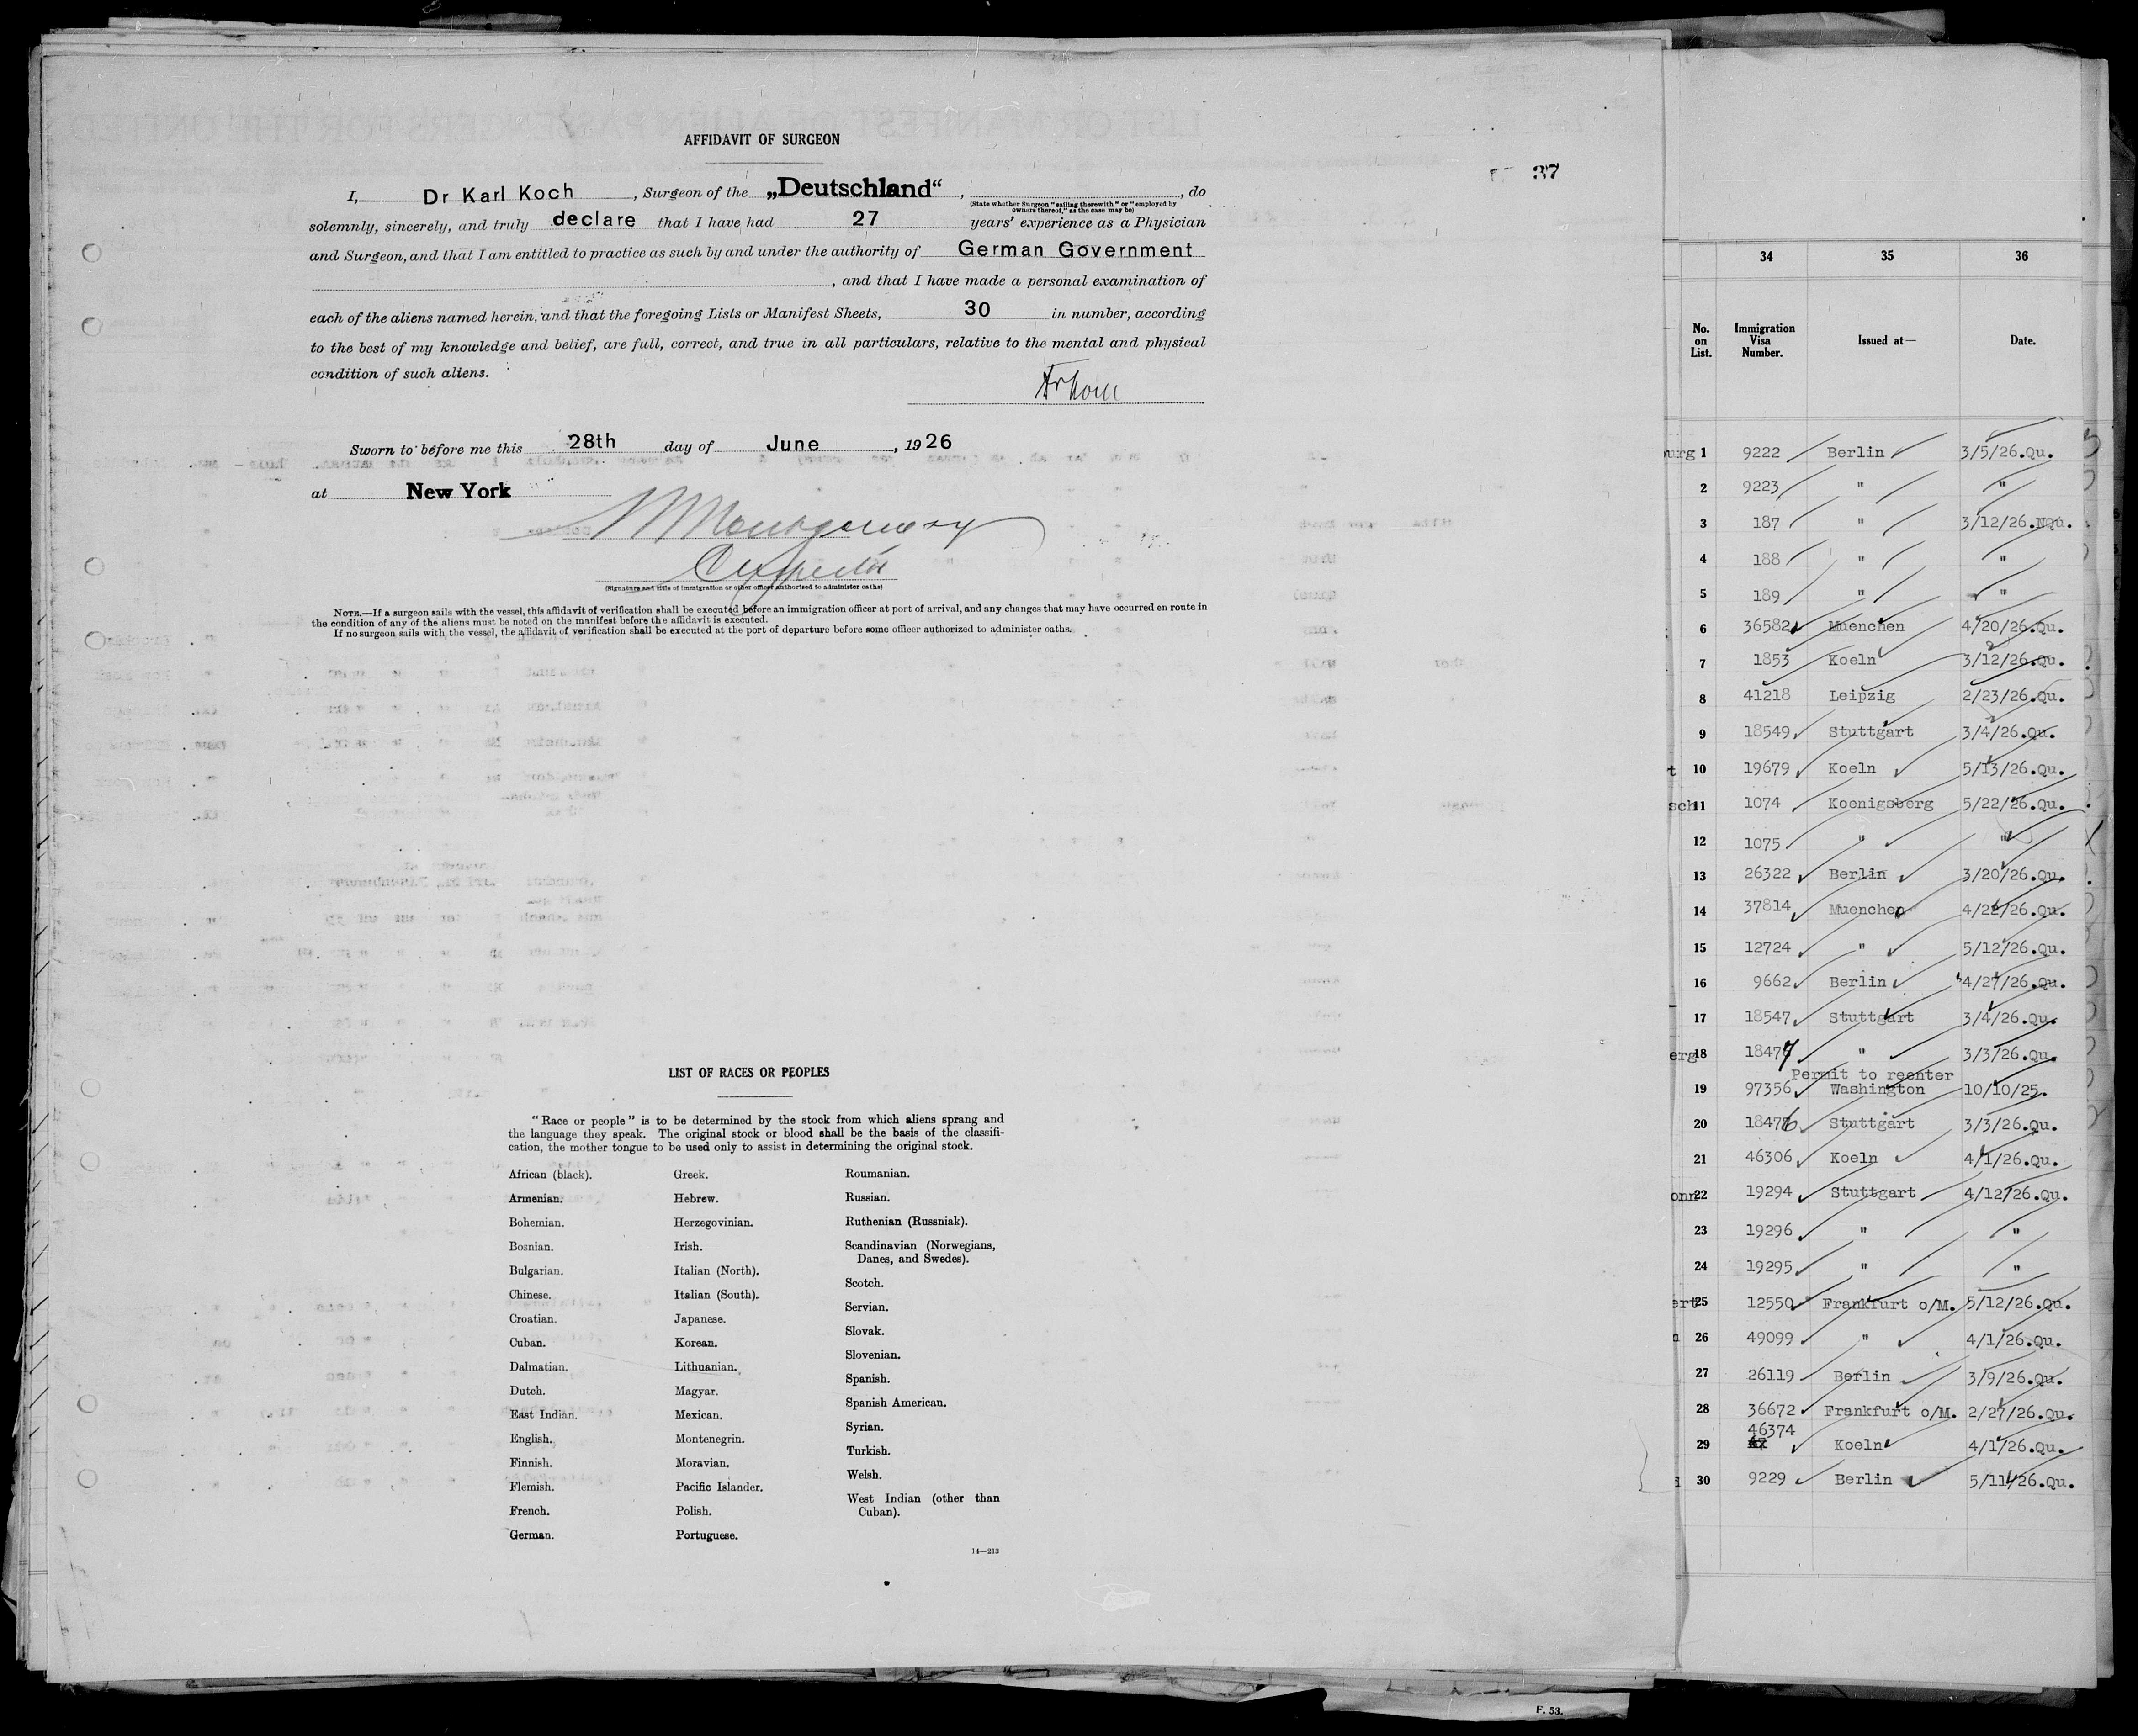 AFFIDAVIT OF SURGEON
37
I, Dr Karl Koch, Surgeon of the „Deutschland“, , do
(State whether Surgeon "sailing therewith" or "employed by
owners thereof," as the case may be)
solemnly, sincerely, and truly declare that I have had 27 years' experience as a Physician
and Surgeon, and that I am entitled to practice as such by and under the authority of German Government
, and that I have made a personal examination of
each of the aliens named herein, and that the foregoing Lists or Manifest Sheets, 30 in number, according
to the best of my knowledge and belief, are full, correct, and true in all particulars, relative to the mental and physical
condition of such aliens.
Sworn to before me this 28th day of June, 1926
at New York
Montgomery
(Signature and title of immigration or other officer authorized to administer oaths)
NOTE.—If a surgeon sails with the vessel, this affidavit of verification shall be executed before an immigration officer at port of arrival, and any changes that may have occurred en route in
the condition of any of the aliens must be noted on the manifest before the affidavit is executed.
If no surgeon sails with the vessel, the affidavit of verification shall be executed at the port of departure before some officer authorized to administer oaths.
LIST OF RACES OR PEOPLES
"Race or people" is to be determined by the stock from which aliens sprang and
the language they speak. The original stock or blood shall be the basis of the classifi-
cation, the mother tongue to be used only to assist in determining the original stock.
African (black).
Armenian.
Bohemian.
Bosnian.
Bulgarian.
Chinese.
Croatian.
Cuban.
Dalmatian.
Dutch.
East Indian.
English.
Finnish.
Flemish.
French.
German.
Greek.
Hebrew.
Herzegovinian.
Irish.
Italian (North).
Italian (South).
Japanese.
Korean.
Lithuanian.
Magyar.
Mexican.
Montenegrin.
Moravian.
Pacific Islander.
Polish.
Portuguese.
Roumanian.
Russian.
Ruthenian (Russniak).
Scandinavian (Norwegians,
Danes, and Swedes).
Scotch.
Servian.
Slovak.
Slovenian.
Spanish.
Spanish American.
Syrian.
Turkish.
Welsh.
West Indian (other than
Cuban).
14—213
34 35 36
No. on List. Immigration Visa Number. Issued at— Date.
urg 1 9222 Berlin 3/5/26.Qu.
2 9223 " "
3 187 " 3/12/26.NQu.
4 188 " "
5 189 " "
6 36582 Muenchen 4/20/26.Qu.
7 1853 Koeln 3/12/26.Qu.
8 41218 Leipzig 2/23/26.Qu.
9 18549 Stuttgart 3/4/26.Qu.
t 10 19679 Koeln 5/13/26.Qu.
sch 11 1074 Koenigsberg 5/22/26.Qu.
12 1075 " "
13 26322 Berlin 3/20/26.Qu.
14 37814 Muenchen 4/22/26.Qu.
15 12724 " 5/12/26.Qu.
16 9662 Berlin 4/27/26.Qu.
17 18547 Stuttgart 3/4/26.Qu.
erg 18 18477 " 3/3/26.Qu.
Permit to reenter
19 97356 Washington 10/10/25.
20 18476 Stuttgart 3/3/26.Qu.
21 46306 Koeln 4/1/26.Qu.
onn 22 19294 Stuttgart 4/12/26.Qu.
23 19296 " "
24 19295 " "
ert 25 12550 Frankfurt o/M. 5/12/26.Qu.
26 49099 " 4/1/26.Qu.
27 26119 Berlin 3/9/26.Qu.
28 36672 Frankfurt o/M. 2/27/26.Qu.
46374
29 Koeln 4/1/26.Qu.
30 9229 Berlin 5/11/26.Qu.
F. 53.